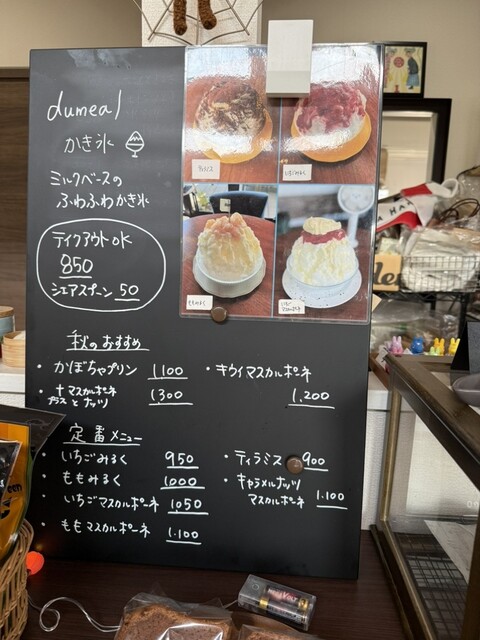 dumeal
かき氷
ミルクベースの
ふわふわかき氷
テイクアウトOK
850
シェアスプーン 50
秋のおすすめ
・かぼちゃプリン 1100
・+マスカルポーネ
プラスとナッツ 1,300
・キウイマスカルポーネ
1,200
定番メニュー
・いちごみるく 950
・ももみるく 1000
・いちごマスカルポーネ 1050
・ももマスカルポーネ 1.100
・ティラミス 900
・キャラメルナッツ
マスカルポーネ 1.100
ティラミス
いちごみるく
ももみるく
いちご
マスカルポーネ